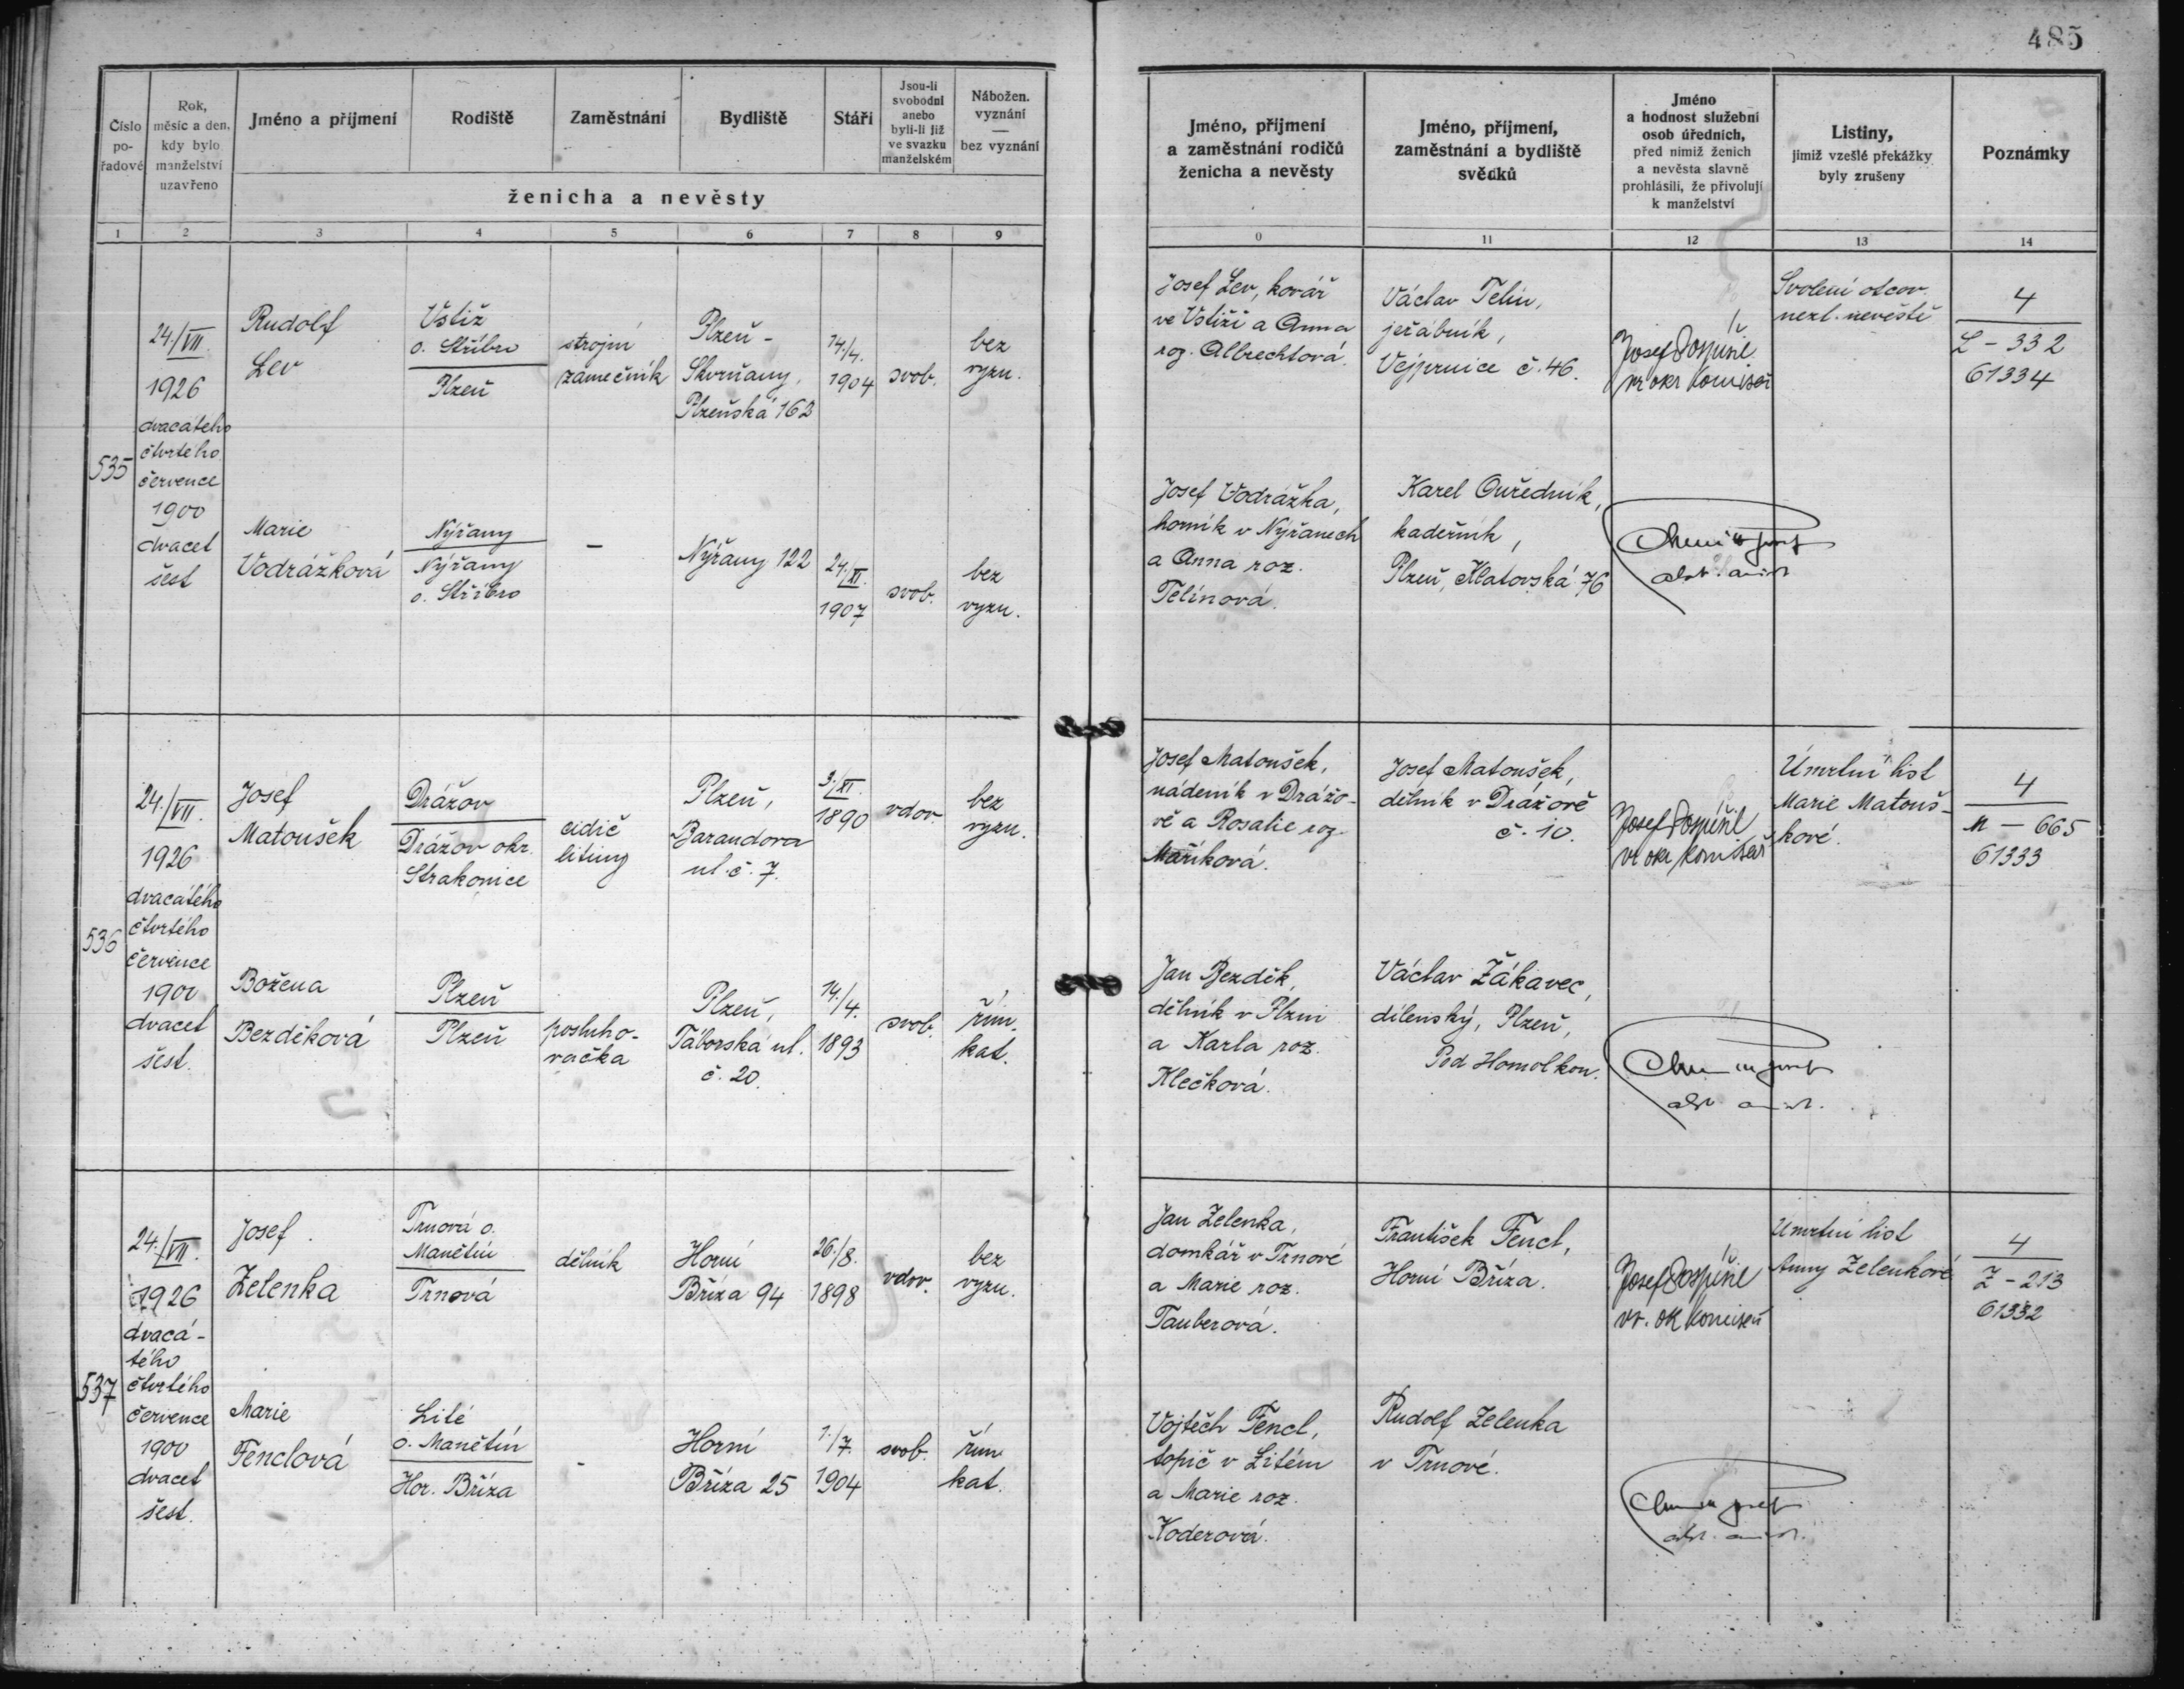 485
Číslo
po-
řadové
Rok,
měsíc a den,
kdy bylo
manželství
uzavřeno
Jméno a příjmení
Rodiště
Zaměstnání
Bydliště
Stáří
Jsou-li
svobodni
anebo
byli-li již
ve svazku
manželském
Nábožen.
vyznání
—
bez vyznání
ženicha a nevěsty
1 2 3 4 5 6 7 8 9
Jméno, příjmení
a zaměstnání rodičů
ženicha a nevěsty
Jméno, příjmení,
zaměstnání a bydliště
svědků
Jméno
a hodnost služební
osob úředních,
před nimiž ženich
a nevěsta slavně
prohlásili, že přivolují
k manželství
Listiny,
jimiž vzešlé překážky
byly zrušeny
Poznámky
0 11 12 13 14
535
24./VII.
1926
dvacátého
čtvrtého
července
1900
dvacet
šest
Rudolf
Lev
Vstiž
o. Stříbro
Plzeň
strojní
zámečník
Plzeň -
Skvrňany,
Plzeňská 162
14./4.
1904
svob.
bez
vyzn.
Marie
Vodrážková
Nýřany
Nýřany
o. Stříbro
-
Nýřany 122
24./XI.
1907
svob.
bez
vyzn.
Josef Lev, kovář
ve Vstiži a Anna
roz. Albrechtová.
Václav Telín,
jeřábník,
Vejprnice č. 46.
Josef Pospíšil
vr okr komisař
Svolení otcov.
nezl. nevěstě
4
L - 332
61334
Josef Vodrážka,
horník v Nýřanech
a Anna roz.
Telínová.
Karel Ouředník,
kadeřník,
Plzeň, Klatovská 76
536
24./VII.
1926
dvacátého
čtvrtého
července
1900
dvacet
šest.
Josef
Matoušek
Drážov
Drážov okr.
Strakonice
cidič
litiny
Plzeň,
Barandova
ul. č. 7.
3./XI.
1890
vdov.
bez
vyzn.
Božena
Bezděková
Plzeň
Plzeň
posluho-
vačka
Plzeň,
Táborská ul.
č. 20.
14./4.
1893
svob.
řím.
kat.
Josef Matoušek,
nádeník v Drážo-
vě a Rosalie roz.
Maříková.
Josef Matoušek,
dělník v Drážově
č. 10.
Josef Pospíšil
vr okr komisař
Úmrtní list
Marie Matouš-
kové.
4
M - 665
61333
Jan Bezděk,
dělník v Plzni
a Karla roz.
Klečková.
Václav Žákavec,
dílenský, Plzeň,
Pod Homolkou.
537
24./VII.
1926
dvacá-
tého
čtvrtého
července
1900
dvacet
šest.
Josef
Zelenka
Trnová o.
Manětín
Trnová
dělník
Horní
Bříza 94
26./8.
1898
vdov.
bez
vyzn.
Marie
Fenclová
Lité
o. Manětín
Hor. Bříza
-
Horní
Bříza 25
1./7.
1904
svob.
řím.
kat.
Jan Zelenka,
domkář v Trnové
a Marie roz.
Tauberová.
František Fencl,
Horní Bříza.
Josef Pospíšil
vr. ok komisař
Úmrtní list
Anny Zelenkové
4
Z - 213
61332
Vojtěch Fencl,
topič v Litém
a Marie roz.
Koderová.
Rudolf Zelenka
v Trnové.